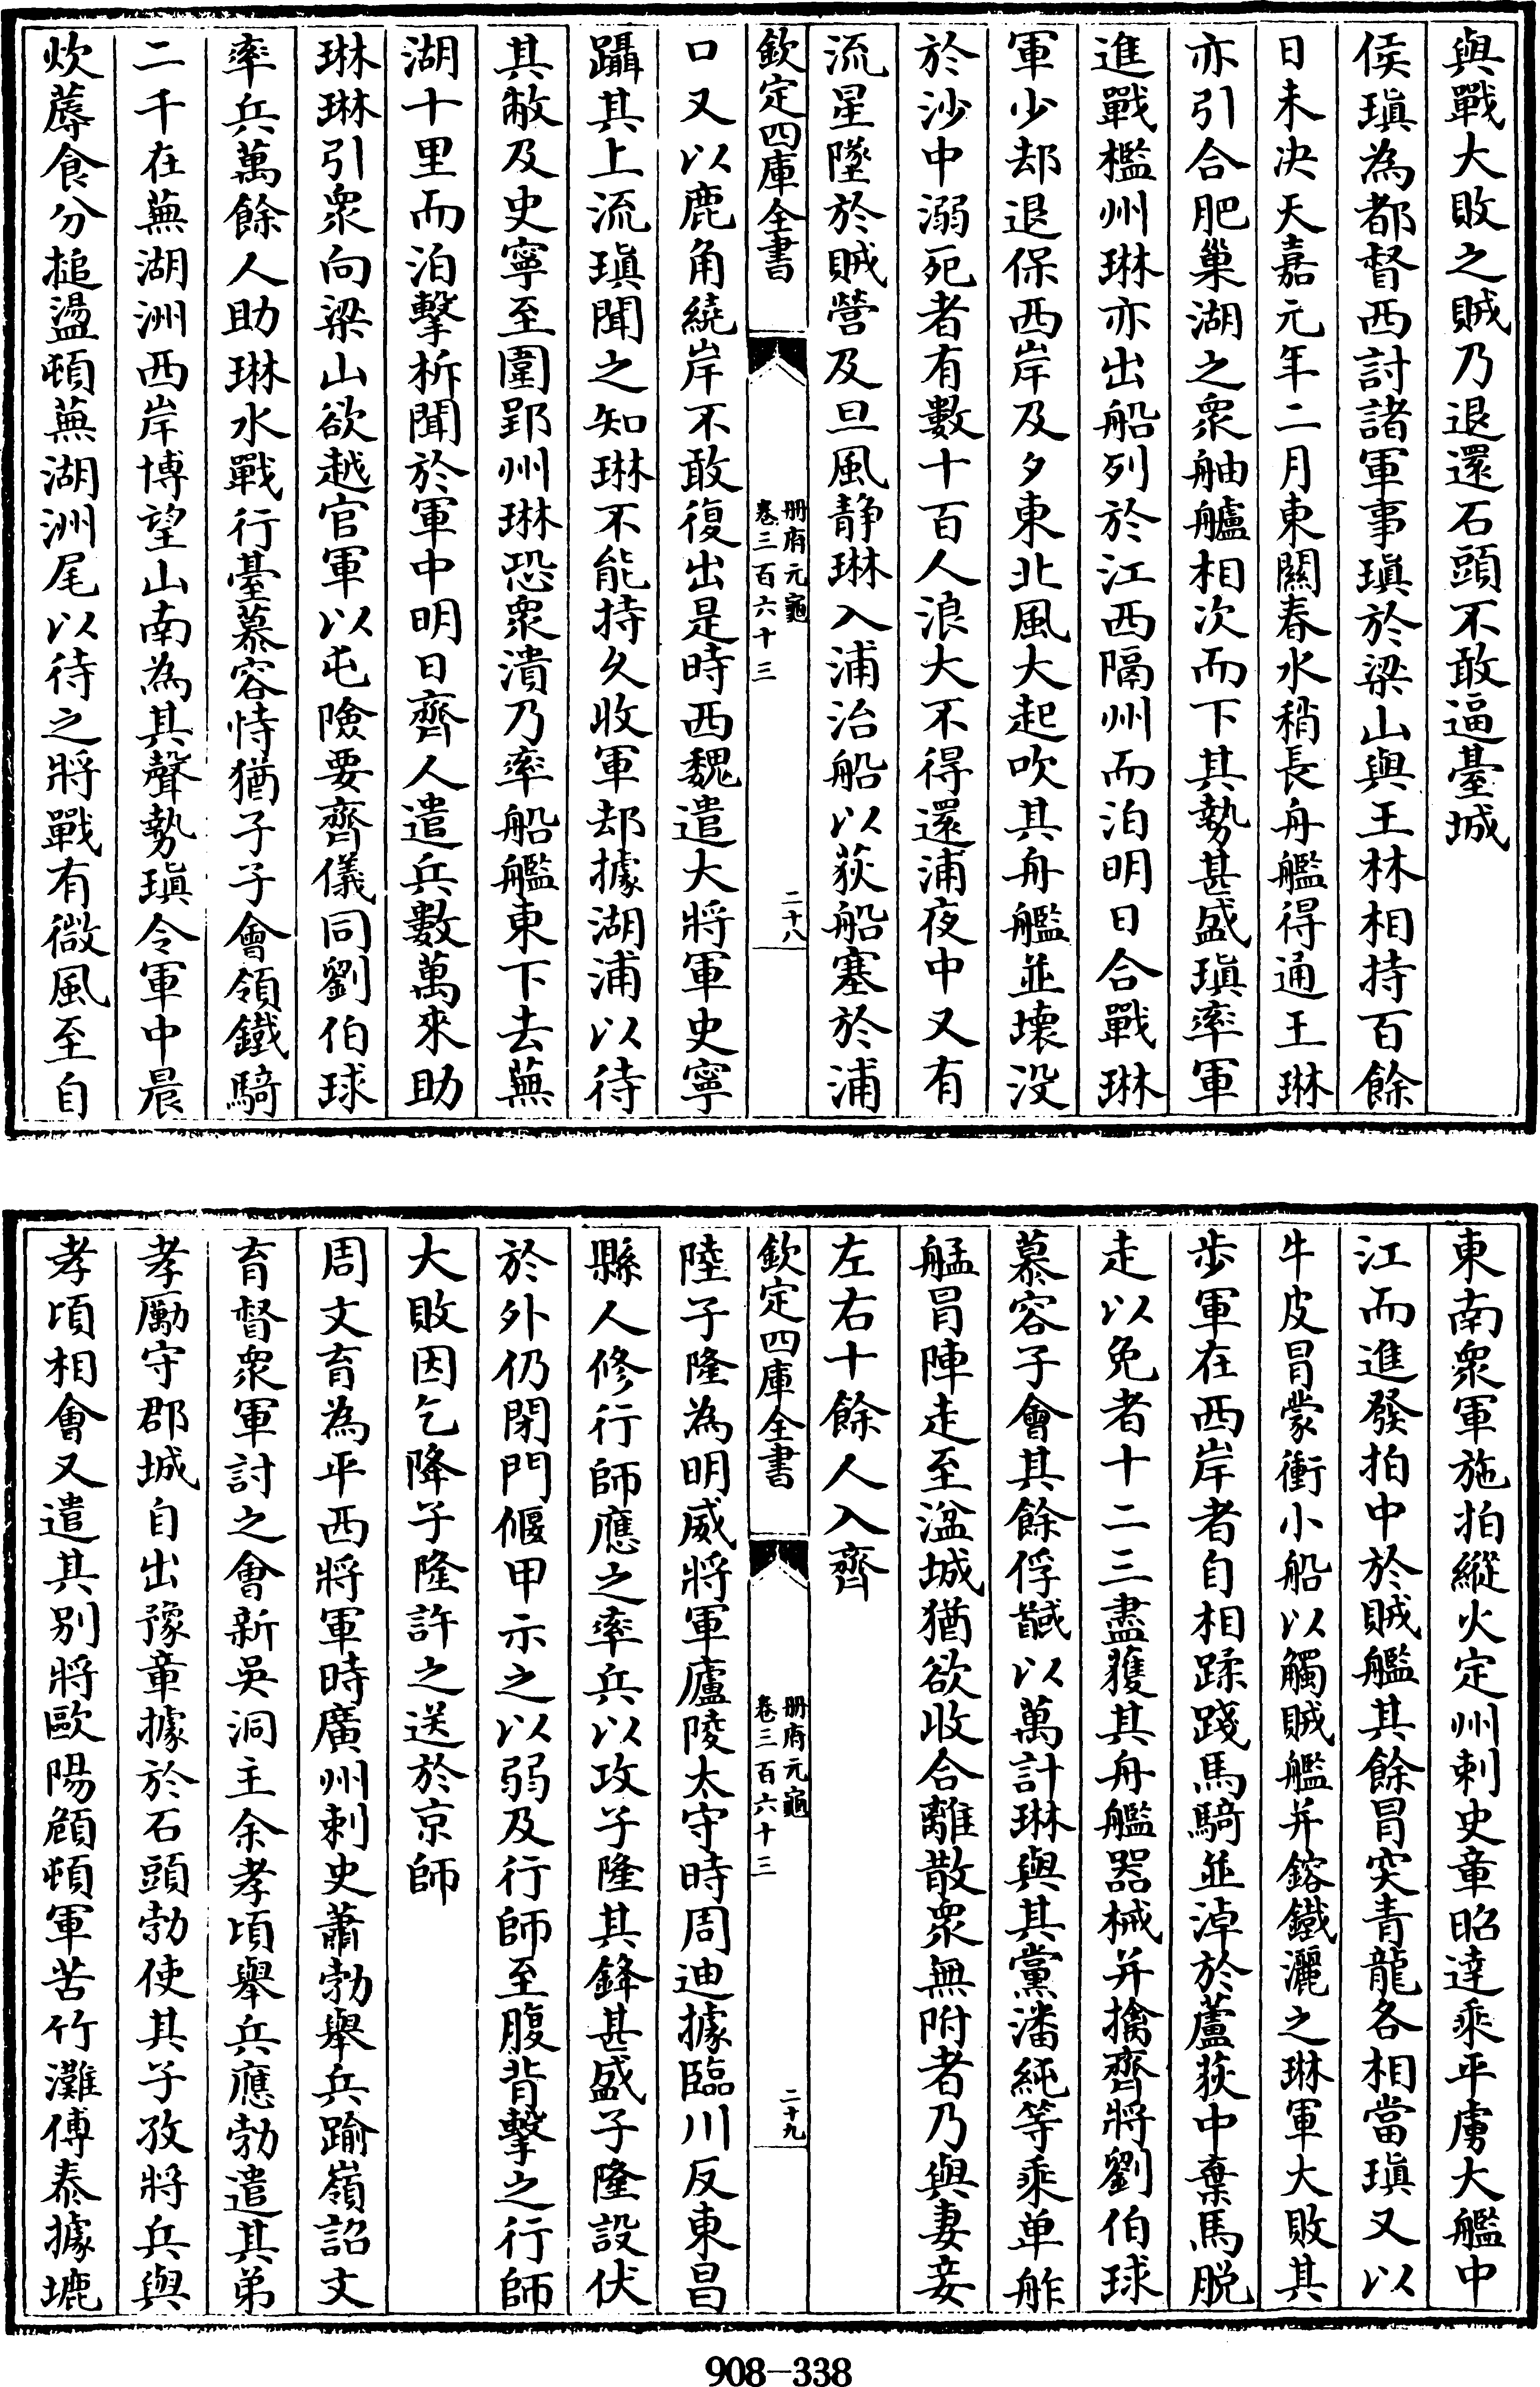 與戰大敗之賊乃退還石頭不敢逼臺城
侯瑱為都督西討諸軍事瑱於梁山與王林相持百餘
日未决天嘉元年二月東關春水稍長舟艦得通王琳
亦引合肥巢湖之衆舳艫相次而下其勢甚盛瑱率軍
進戰檻州琳亦出船列於江西隔州而泊明日合戰琳
軍少却退保西岸及夕東北風大起吹其舟艦並壊没
於沙中溺死者有數十百人浪大不得還浦夜中又有
流星墜於賊營及旦風静琳入浦治船以荻船塞於浦
欽定四庫全書
册府元龜
卷三百六十三
二十八
口又以鹿角繞岸不敢復出是時西魏遣大將軍史寧
躡其上流瑱聞之知琳不能持久收軍却據湖浦以待
其敝及史寧至圍郢州琳恐衆潰乃率船艦東下去蕪
湖十里而泊擊柝聞於軍中明日齊人遣兵數萬來助
琳琳引衆向梁山欲越官軍以屯險要齊儀同劉伯球
率兵萬餘人助琳水戰行臺慕容恃猶子子會領鐵騎
二千在蕪湖洲西岸博望山南為其聲勢瑱令軍中晨
炊蓐食分搥盪頓蕪湖洲尾以待之將戰有微風至自
東南衆軍施拍縱火定州刺史章昭達乘平虜大艦中
江而進發拍中於賊艦其餘冒突青龍各相當瑱又以
牛皮冒蒙衝小船以觸賊艦并鎔鐵灑之琳軍大敗其
步軍在西岸者自相蹂踐馬騎並淖於蘆荻中棄馬脫
走以免者十二三盡獲其舟艦器械并擒齊將劉伯球
慕容子會其餘俘馘以萬計琳與其黨潘純等乘单舴
艋冒陣走至湓城猶欲收合離散衆無附者乃與妻妾
左右十餘人入齊
欽定四庫全書
册府元龜
卷三百六十三
二十九
陸子隆為明威將軍廬陵太守時周迪據臨川反東昌
縣人修行師應之率兵以攻子隆其鋒甚盛子隆設伏
於外仍閉門偃甲示之以弱及行師至腹背擊之行師
大敗因乞降子隆許之送於京師
周文育為平西將軍時廣州刺史蕭勃舉兵踰嶺詔文
育督衆軍討之會新吳洞主余孝頃舉兵應勃遣其弟
孝勵守郡城自出豫章據於石頭勃使其子孜將兵與
孝頃相會又遣其别將歐陽頠頓軍苦竹灘傅泰據墌
908-338